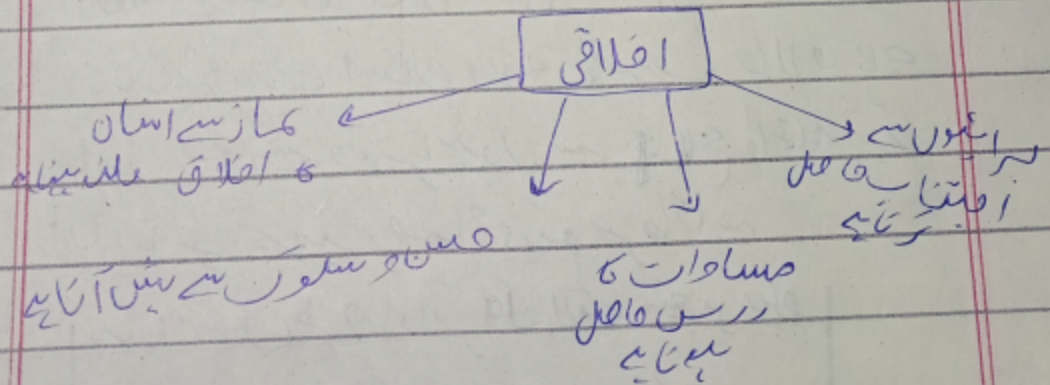 اخلاقی
برائیوں سے
اجتناب حاصل
کرتا ہے
مساوات کا
درس حاصل
ہوتا ہے
حسن و سلوک سے پیش آتا ہے
نماز سے انسان
کا اخلاق بلند ہوتا ہے